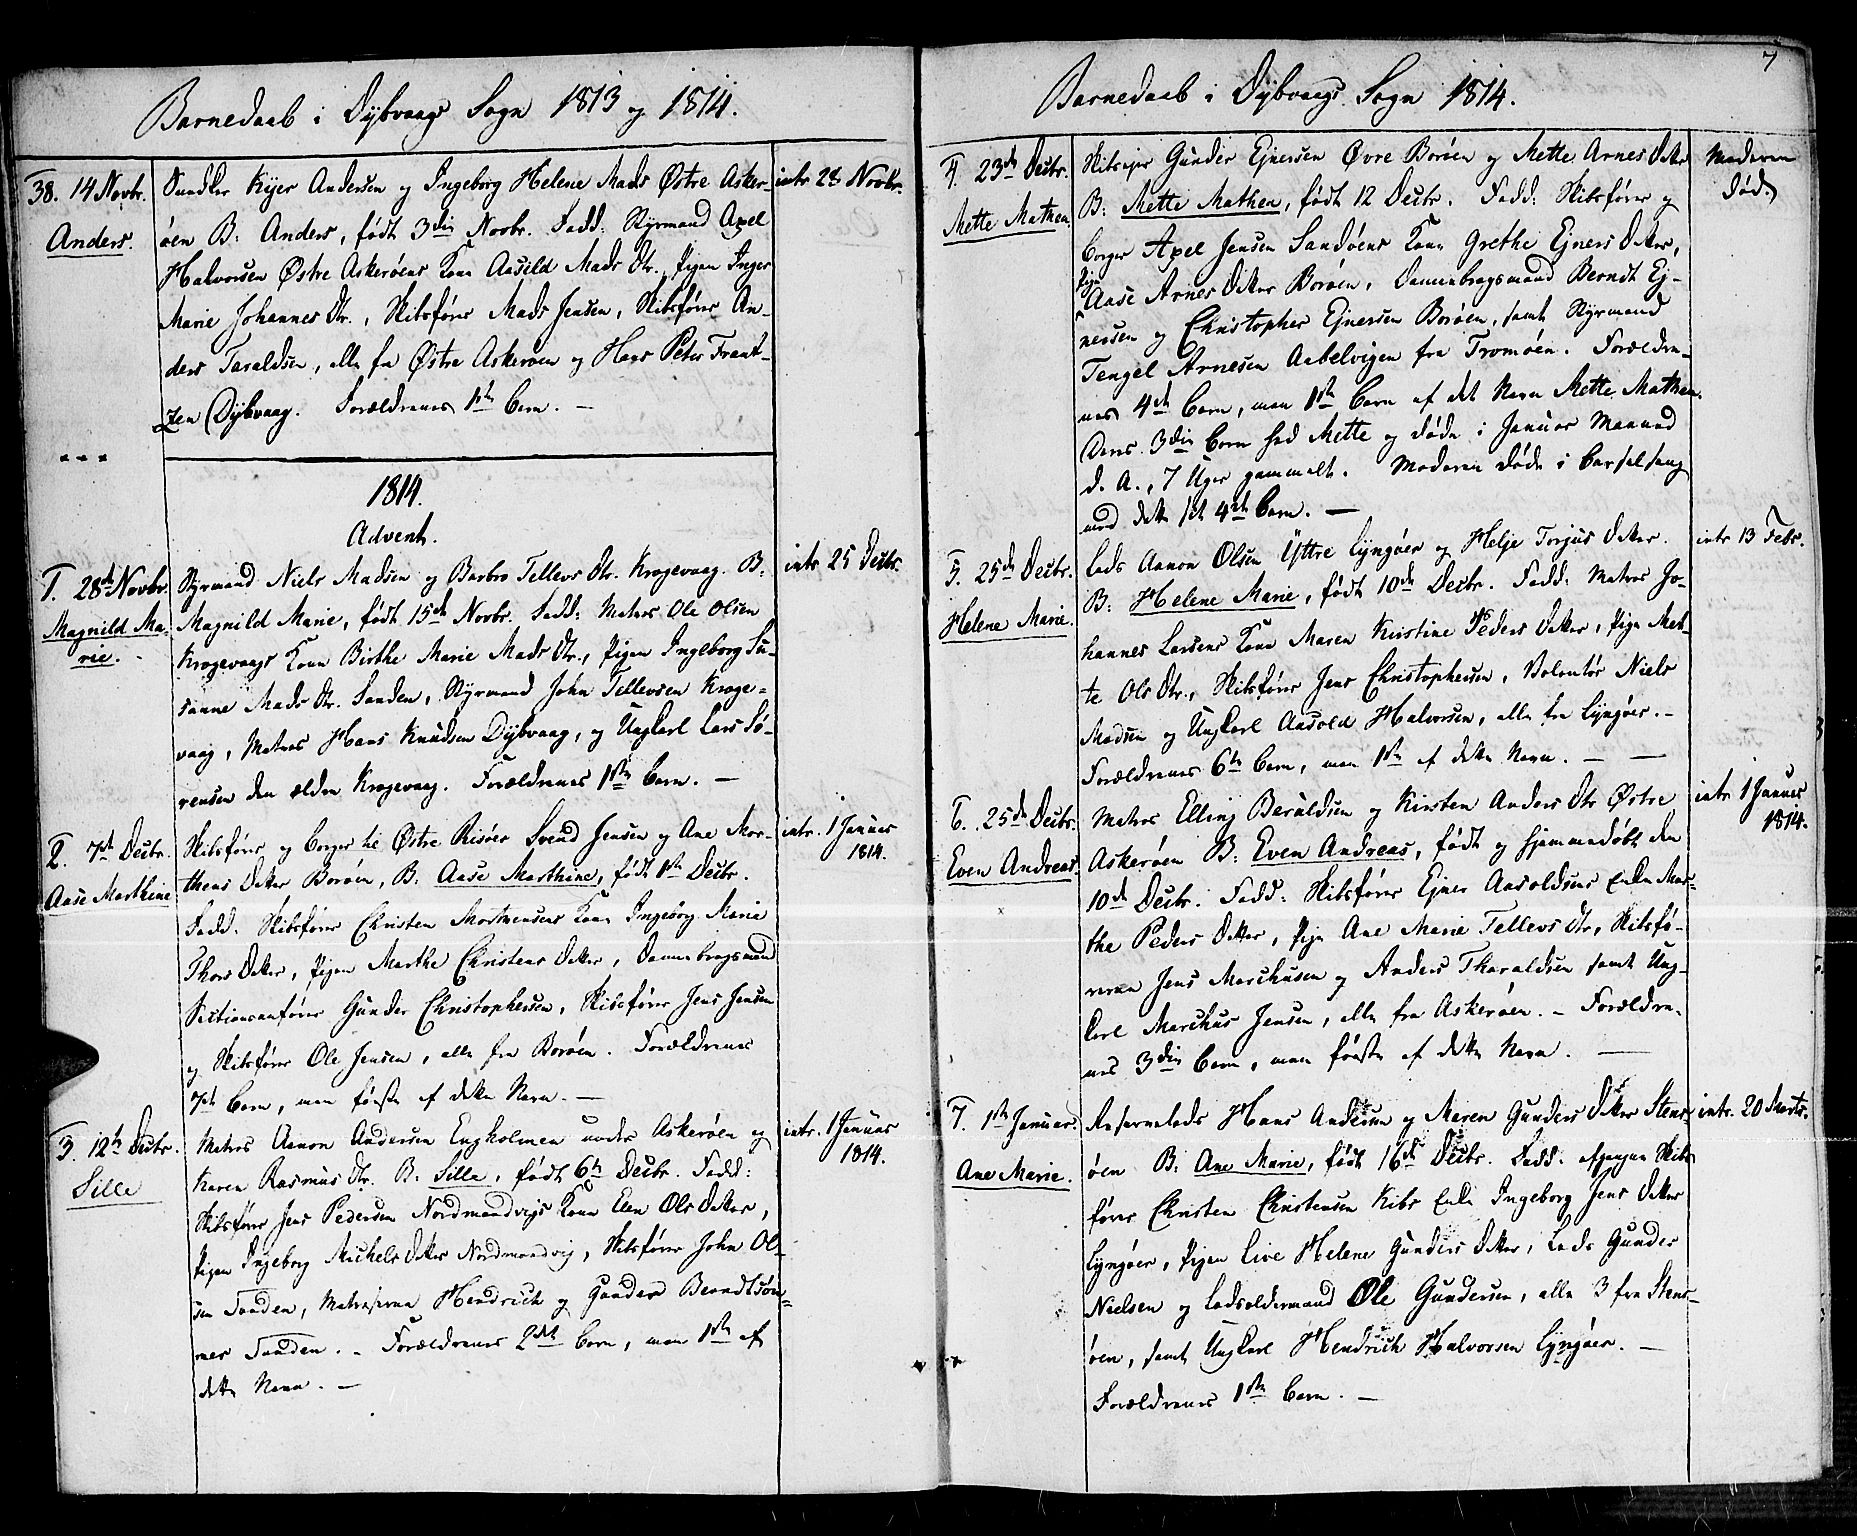 Barnedaab i Dybvaags Sogn 1813 og 1814.
38. 14 Novbr.
Anders.
Snedker Kyer Andersen og Ingeborg Helene Mads Østre Asker-
øen B: Anders, født 3die Novbr. Fadd: Styrmand Axel
Halvorsen Østre Askerøens Kone Aasild Mads Dtr., Pigen Inger
Marie Johannes Dtr., Skibsfører Mads Jensen, Skibsfører An-
ders Taraldsen, alle fra Østre Askerøen og Hans Peter Frant-
zen Dybvaag. Forældrenes 1ste Barn. —
intr. 28 Novbr.
1814.
Advent.
1. 28de Novbr.
Magnild Ma-
rie.
Styrmand Niels Madsen og Barbro Tellevs Dtr. Krogevaag. B:
Magnild Marie, født 15de Novbr. Fadd: Matros Ole Olsen
Krogevaags Kone Birthe Marie Mads Dtr., Pigen Ingeborg Su-
sanne Mads Dtr. Sanden, Styrmand John Tellevsen Kroge-
vaag, Matros Hans Knudsen Dybvaag, og Ungkarl Lars Sø-
rensen den ældre Krogevaag. Forældrenes 1ste Barn. —
intr. 25 Decbr.
2. 7de Decbr.
Aase Marthine
Skibsfører og Borger til Østre Risøer Svend Jensen og Ane Mor-
thens Datter Borøen, B: Aase Marthine, født 1ste Decbr.
Fadd: Skibsfører Christen Mortensens Kone Ingeborg Marie
Thors Datter, Pigen Marthe Christens Datter, Dannebrogsmand
Divisionsanfører Gunder Christophersen, Skibsfører Jens Jensen
og Skibsfører Ole Jensen, alle fra Borøen. Forældrenes
7de Barn, men første af dette Navn. —
intr. 1 Januar
1814.
3. 12te Decbr.
Sille
Matros Aanon Andersen Engholmen under Askerøen og
Karen Rasmus Dtr. B: Sille, født 6te Decbr. Fadd:
Skibsfører Jens Pedersen Nordmandvigs Kone Elen Ols Datter,
Pigen Ingeborg Michels Datter Nordmandvig, Skibsfører John Ol-
sen Sanden, Matroserne Hendrich og Gunder Berndtsøn-
ner Sanden. — Forældrenes 2det Barn, men 1ste af
dette Navn. —
intr. 1 Januar
1814.
7
Barnedaab i Dybvaags Sogn 1814.
4. 23de Decbr.
Mette Mathea
Skibsejer Gunder Ejnersen Øvre Borøen og Mette Arnes Datter
B: Mette Mathea, født 12 Decbr. Fadd: Skibsfører og
Borger Axel Jensen Sandøens Kone Grethe Ejners Datter,
Pigen Aase Arnes Datter Borøen, Dannebrogsmand Berndt Ej-
nersen og Christopher Ejnersen Borøen, samt Styrmand
Tengel Arnesen Aabelvigen fra Tromøen. Forældre-
nes 4de Barn, men 1ste Barn af det Navn Mette Mathea.
Deres 3die Barn hed Mette og døde i Januar Maaned
d. A., 7 Uger gammelt. Moderen døde i Barselseng
med dette sit 4de Barn. —
Moderen
død.
5. 25de Decbr.
Helene Marie.
Lods Aanon Olsen Yttre Lyngøer og Helje Torjus Datter.
B: Helene Marie, født 10de Decbr. Fadd: Matros Jo-
hannes Larsens Kone Maren Kirstine Peders Datter, Pige Met-
te Ols Dtr., Skibsfører Jens Christophersen, Volontør Niels
Madsen og Ungkarl Aasold Halvorsen, alle fra Lyngøer. —
Forældrenes 6te Barn, men 1ste af dette Navn. —
intr. 13 Febr.
6. 25de Decbr.
Even Andreas.
Matros Elling Beruldsen og Kirsten Anders Dtr Østre
Askerøen B: Even Andreas, født og hjemmedøbt den
10de Decbr. Fadd: Skibsfører Ejner Aasoldsens Enke Mar-
the Peders Datter, Pige Ane Marie Tellevs Dtr, Skibsfø-
rerne Jens Marchusen og Anders Tharaldsen samt Ung-
karl Marchus Jensen, alle fra Askerøen. — Forældre-
nes 3die Barn, men første af dette Navn. —
intr. 1 Januar
1814.
7. 1ste Januar.
Ane Marie.
Reservelods Hans Andersen og Maren Gunders Datter Stens-
øen B: Ane Marie, født 16de Decbr. Fadd: afgangne Skibs
fører Christen Christensen Kibs Enke Ingeborg Jens Datter
Lyngøer, Pigen Live Helene Gunders Datter, Lods Gunder
Nielsen og Lodsoldermand Ole Gundersen, alle 3 fra Stens-
øen, samt Ungkarl Hendrich Halvorsen Lyngøer. —
Forældrenes 1ste Barn. —
intr. 20 Marts.